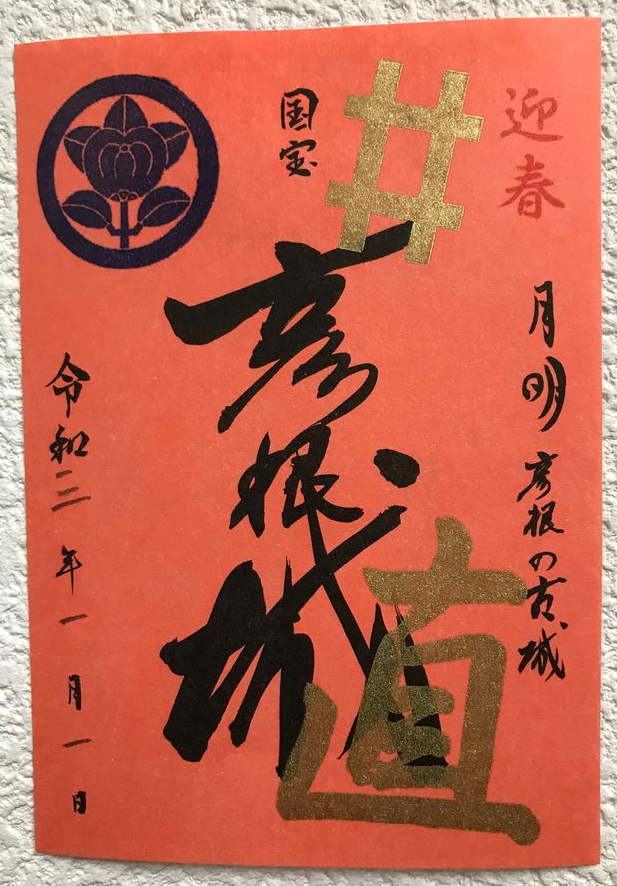 迎春
月明 彦根の古城
井
国宝
彦根城
直
令和三年一月一日